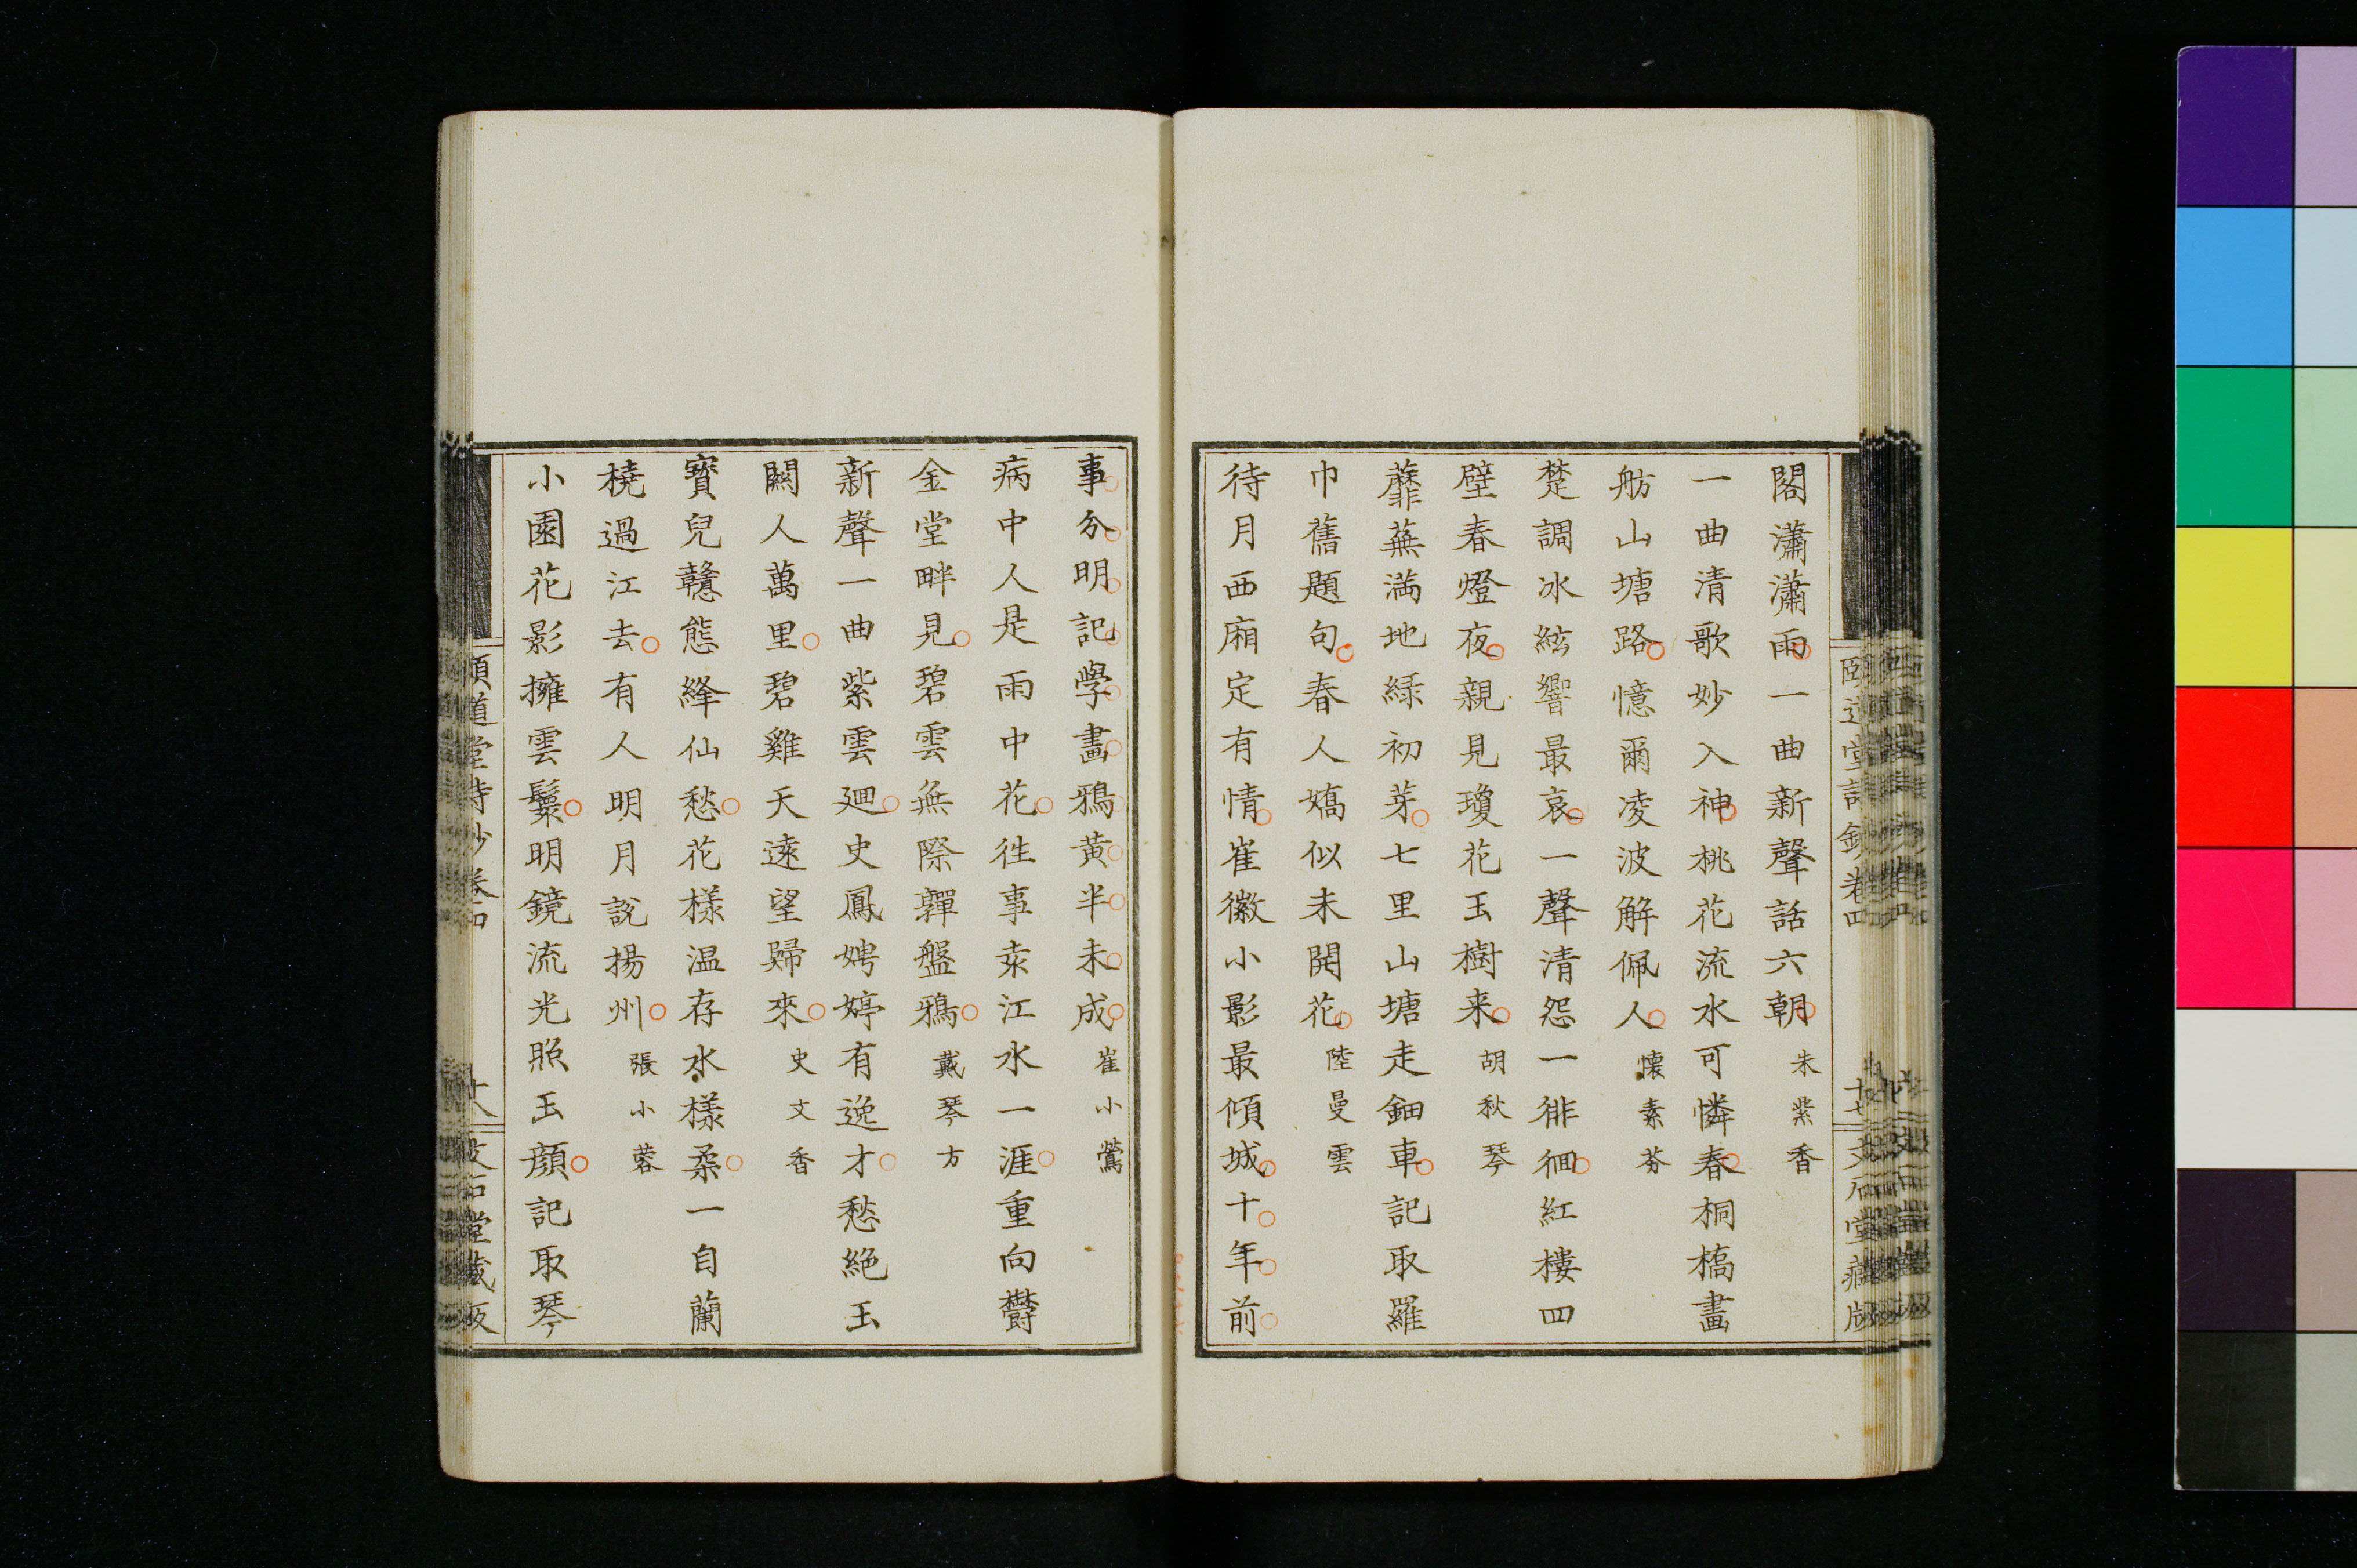 閣瀟瀟雨一曲新聲話六朝 朱紫香
一曲清歌妙入神桃花流水可憐春桐橋畫
舫山塘路憶爾凌波解佩人 懐素芬
楚調冰絃響最哀一聲清怨一徘徊紅樓四
壁春燈夜親見瓊花玉樹来 胡秋琴
蘼蕪満地緑初芽七里山塘走鈿車記取羅
巾舊題句春人嬌似未開花 陸曼雲
待月西廂定有情崔徽小影最傾城十年前
頤道堂詩鈔卷四 十七 文石堂藏版
事分明記學畫鴉黃半未成 崔小鶯
病中人是雨中花徃事桒江水一涯重向欝
金堂畔見碧雲無際嚲盤鴉 戴琴方
新聲一曲紫雲廻史鳳娉婷有逸才愁絕玉
闗人萬里碧雞天遠望歸來 史文香
寳兒戇態絳仙愁花樣温存水樣柔一自蘭
橈過江去有人明月說揚州 張小蓉
小園花影擁雲鬟明鏡流光照玉顔記取琴
頤道堂詩鈔卷四 十八 文石堂藏版